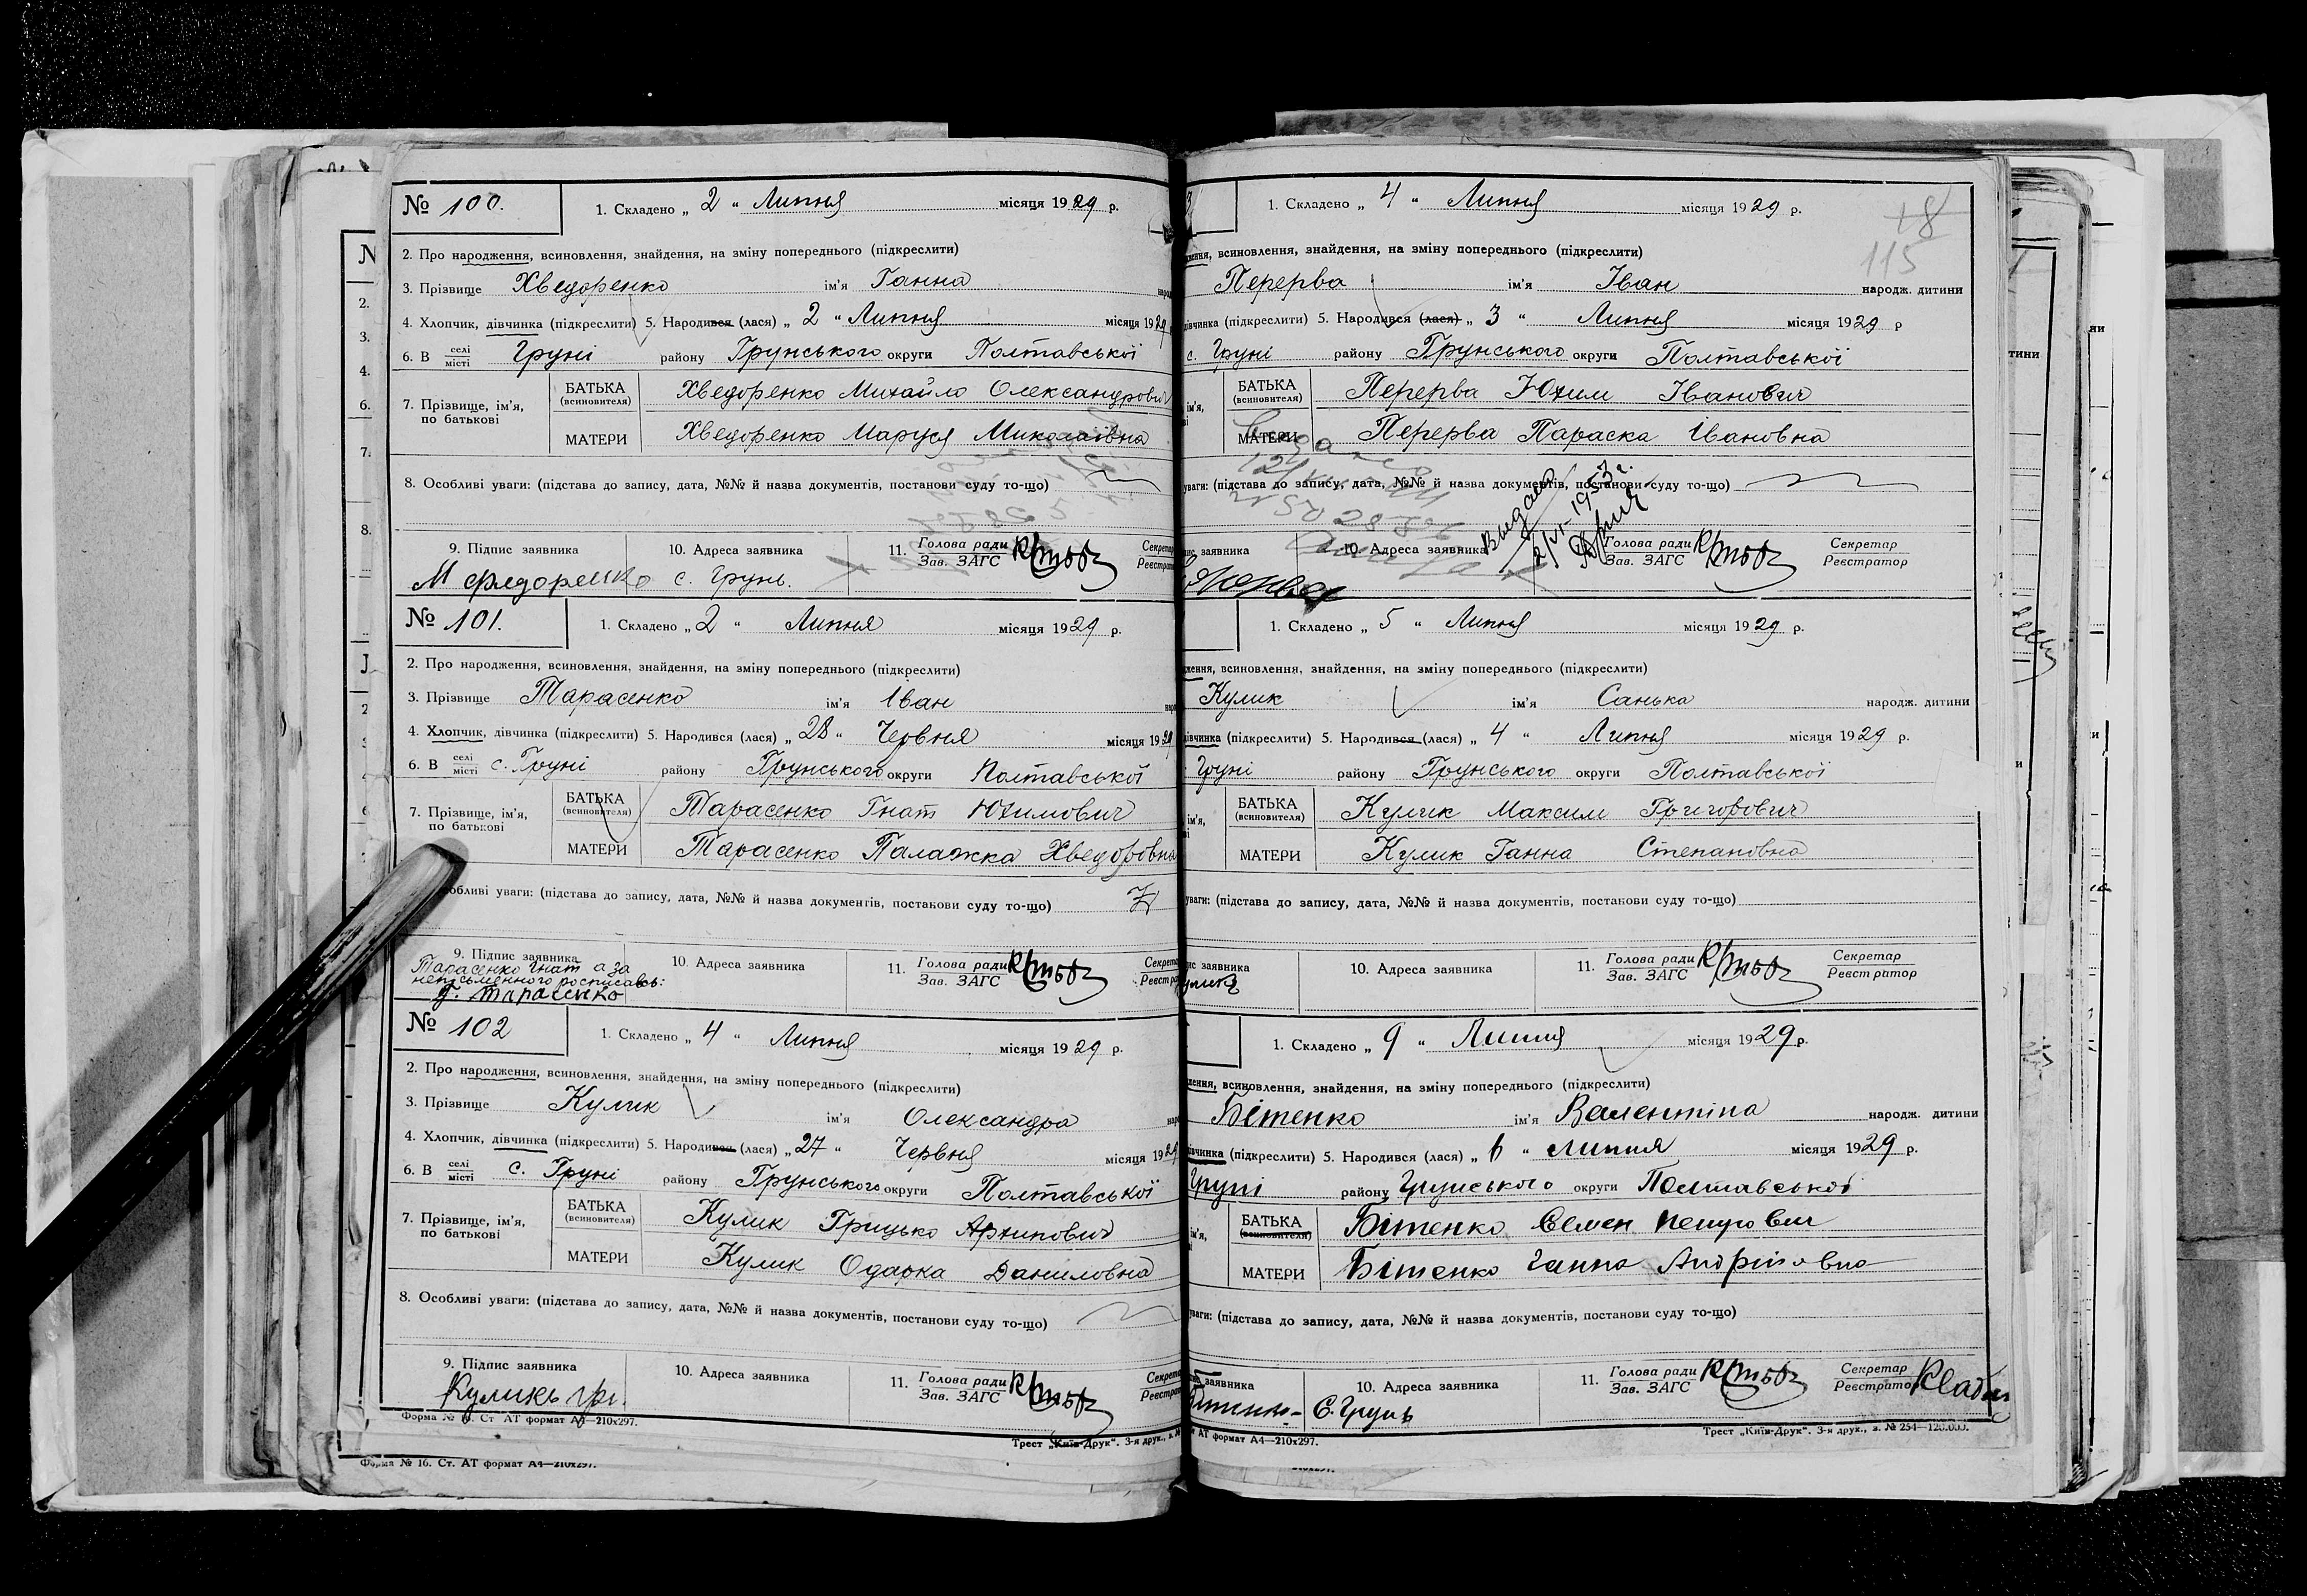 № 100.
1. Складено „ 2 “ Липня місяця 1929 р.
2. Про народження, всиновлення, знайдення, на зміну попереднього (підкреслити)
3. Прізвище Хведоренко ім'я Ганна
4. Хлопчик, дівчинка (підкреслити) 5. Народився (лася) „ 2 “ Липня місяця 1929
6. В селі місті Груні району Грунського округи Полтавської
7. Прізвище, ім'я, по батькові
БАТЬКА (всиновителя) Хведоренко Михайло Олександрович
МАТЕРИ Хведоренко Маруся Миколаївна
8. Особливі уваги: (підстава до запису, дата, №№ й назва документів, постанови суду то-що)
9. Підпис заявника 10. Адреса заявника 11. Голова ради Зав. ЗАГС
М Федоренко с. Грунь.
№ 101.
1. Складено „ 2 “ Липня місяця 1929 р.
2. Про народження, всиновлення, знайдення, на зміну попереднього (підкреслити)
3. Прізвище Тарасенко ім'я Іван
4. Хлопчик, дівчинка (підкреслити) 5. Народився (лася) „ 28 “ Червня місяця 1929
6. В селі місті с. Груні району Грунського округи Полтавської
7. Прізвище, ім'я, по батькові
БАТЬКА (всиновителя) Тарасенко Гнат Юхимович
МАТЕРИ Тарасенко Палажка Хведоровна
обливі уваги: (підстава до запису, дата, №№ й назва документів, постанови суду то-що)
9. Підпис заявника 10. Адреса заявника 11. Голова ради Зав. ЗАГС
Тарасенко Гнат а за
неписьменного росписавсь:
Тарасенко
№ 102
1. Складено „ 4 “ Липня місяця 1929 р.
2. Про народження, всиновлення, знайдення, на зміну попереднього (підкреслити)
3. Прізвище Кулик ім'я Олександра
4. Хлопчик, дівчинка (підкреслити) 5. Народився (лася) „ 27 “ Червня місяця 1929
6. В селі місті с. Груні району Грунського округи Полтавської
7. Прізвище, ім'я, по батькові
БАТЬКА (всиновителя) Кулик Грицько Архипович
МАТЕРИ Кулик Одарка Даниловна
8. Особливі уваги: (підстава до запису, дата, №№ й назва документів, постанови суду то-що)
9. Підпис заявника 10. Адреса заявника 11. Голова ради Зав. ЗАГС
Куликъ гр.
Трест „Київ-Друк“. 3-я друк., з. №
Форма № 16. Ст. АТ формат А4—210х297.
1. Складено „ 4 “ Липня місяця 1929 р.
115
всиновлення, знайдення, на зміну попереднього (підкреслити)
Перерва ім'я Іван народж. дитини
дівчинка (підкреслити) 5. Народився (лася) „ 3 “ Липня місяця 1929 р
с. Груні району Грунського округи Полтавської
БАТЬКА (всиновителя) Перерва Юхим Іванович
МАТЕРИ Перерва Параска Івановна
уваги: (підстава до запису, дата, №№ й назва документів, постанови суду то-що)
заявника 10. Адреса заявника Голова ради Зав. ЗАГС Секретар Реєстратор
1. Складено „ 5 “ Липня місяця 1929 р.
всиновлення, знайдення, на зміну попереднього (підкреслити)
Кулик ім'я Санька народж. дитини
дівчинка (підкреслити) 5. Народився (лася) „ 4 “ Липня місяця 1929 р.
Груні району Грунського округи Полтавської
БАТЬКА (всиновителя) Кулик Максим Григорович
МАТЕРИ Кулик Ганна Степановна
уваги: (підстава до запису, дата, №№ й назва документів, постанови суду то-що)
заявника 10. Адреса заявника 11. Голова ради Зав. ЗАГС Секретар Реєстратор
1. Складено „ 9 “ Липня місяця 1929 р.
всиновлення, знайдення, на зміну попереднього (підкреслити)
Бітенко ім'я Валентіна народж. дитини
дівчинка (підкреслити) 5. Народився (лася) „ 6 “ Липня місяця 1929 р.
Груні району Грунського округи Полтавської
БАТЬКА (всиновителя) Бітенко Семен Петрович
МАТЕРИ Бітенко Ганна Андріівна
уваги: (підстава до запису, дата, №№ й назва документів, постанови суду то-що)
заявника 10. Адреса заявника 11. Голова ради Зав. ЗАГС Секретар Реєстратор
С. Грунь
АТ формат А4—210х297.
Трест „Київ-Друк“. 3-я друк., з. № 254—120.000.